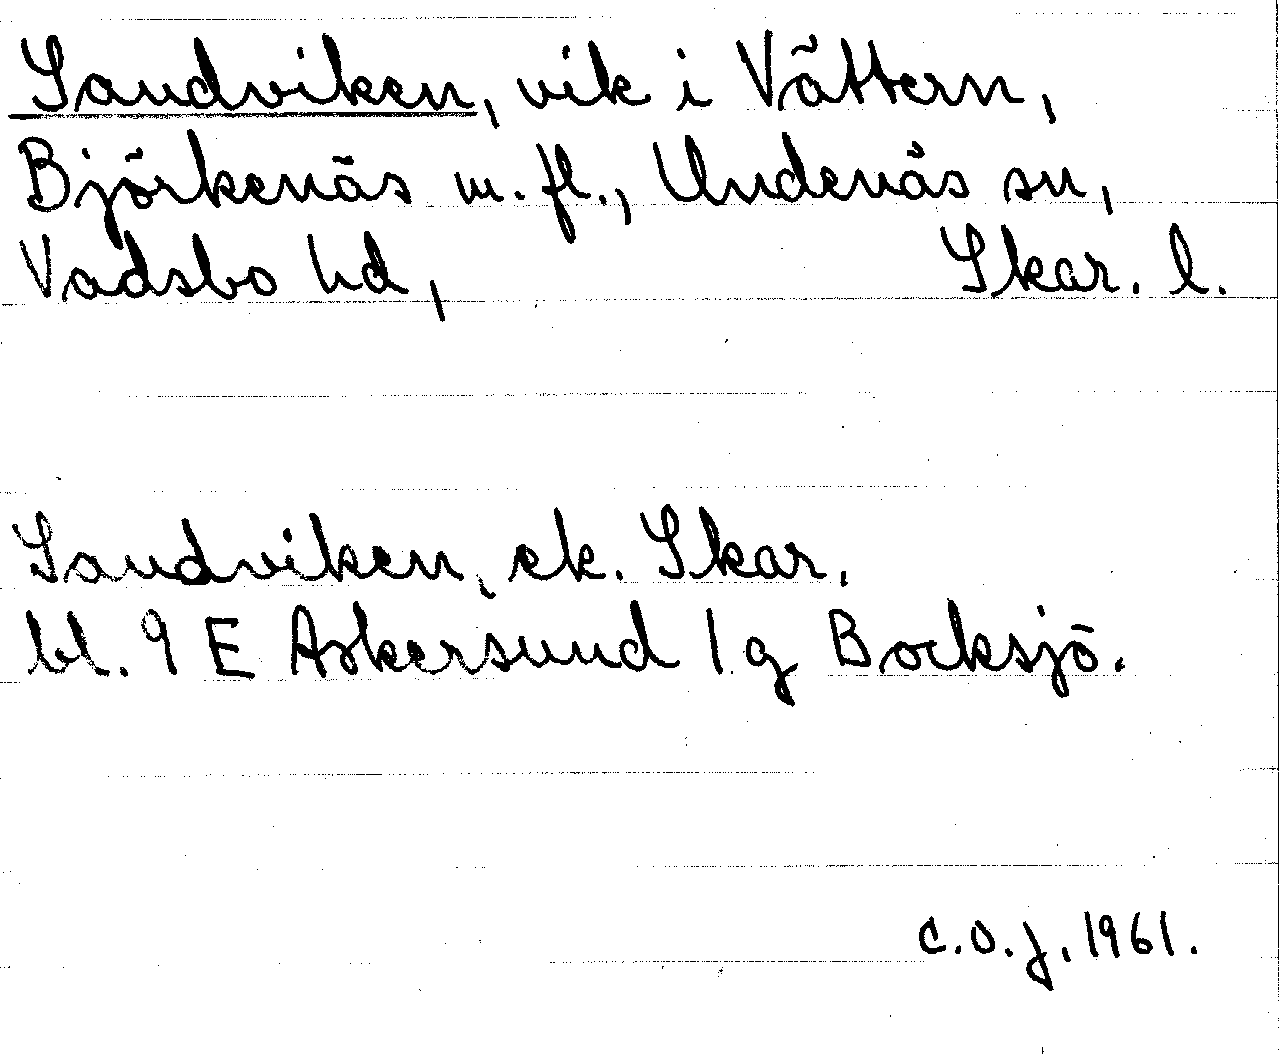 Sandviken, vik i Vättern,
Björkenäs m. fl., Undenäs sn,
Vadsbo hd, Skar. l.
Sandviken, ek. Skar,
bl. 9 E Askersund 1 g Bocksjö.
C.O.J. 1961.